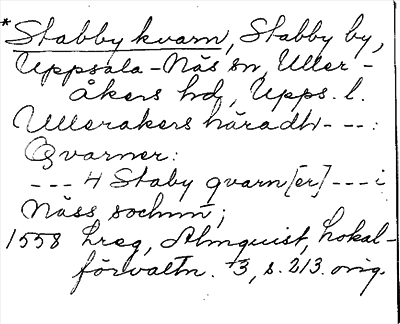 *Stabby kvarn, Stabby by,
Uppsala-Näs sn, Uller-
åkers hd, Upps. l.
Ullerakers häradh---:
Qvarner:
--- 4 Staby qvarn[er] --- i
Näss sochnn;
1558 Lreg, Almquist, Lokal-
förvaltn. 3, s. 213. orig.